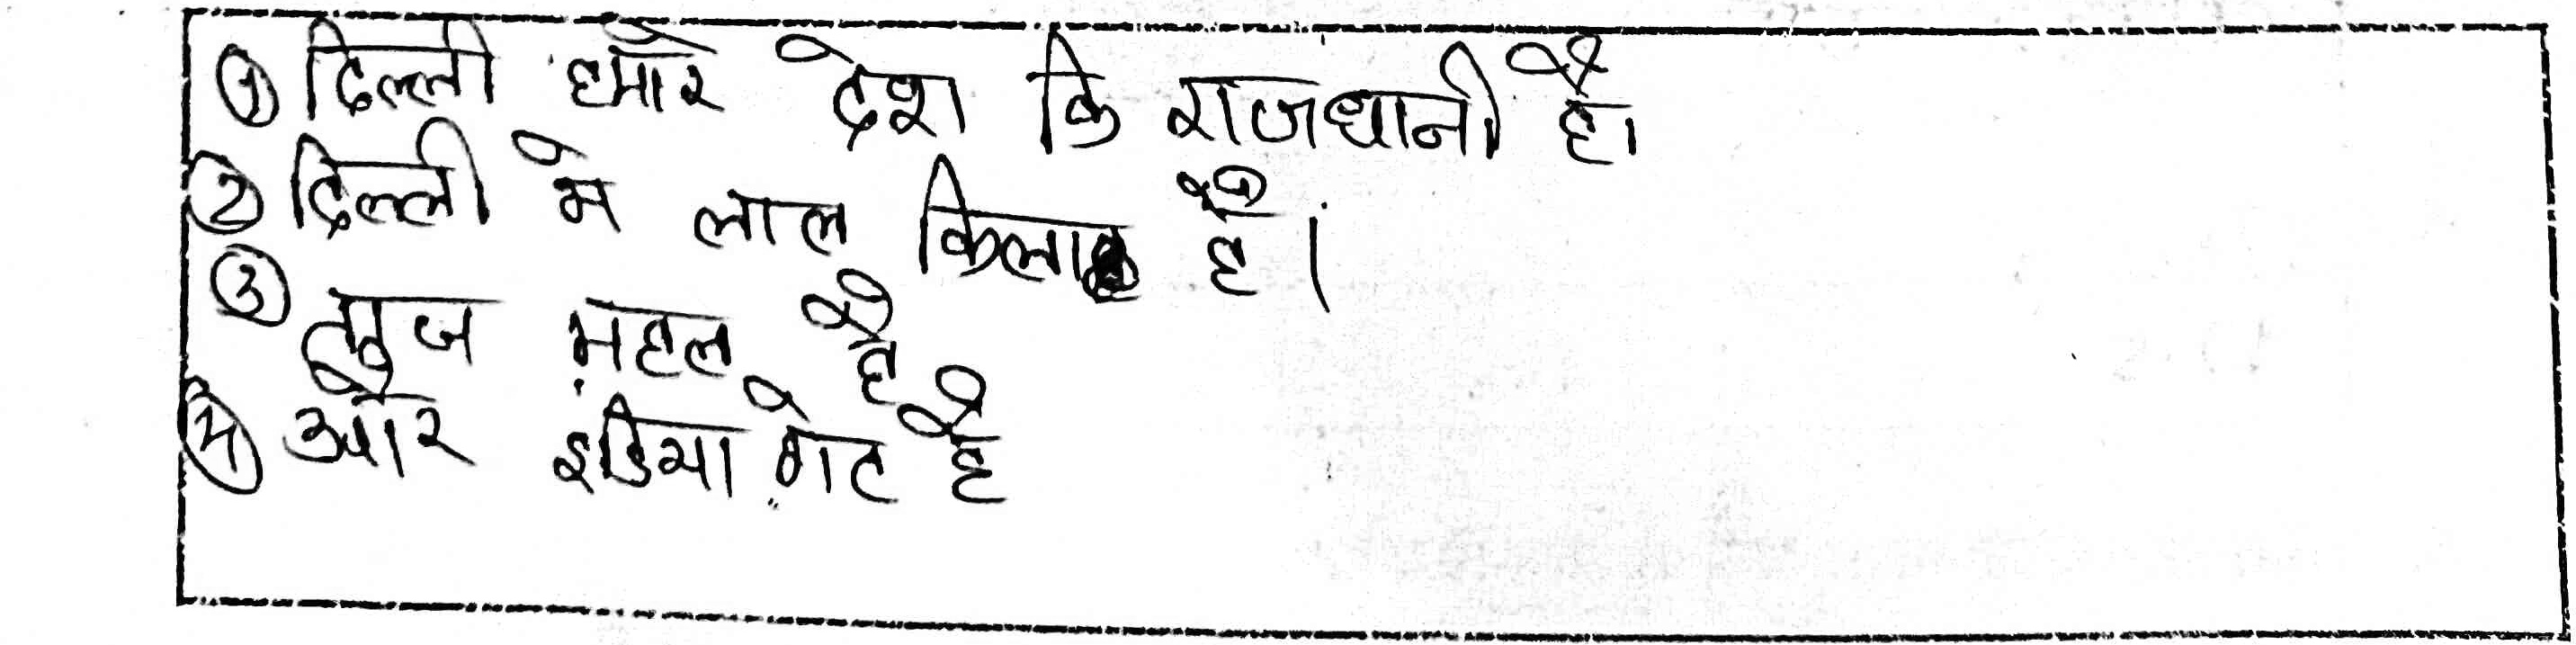 ① दिल्ली हमारे देश कि राजधानी है।
② दिल्ली मे लाल किला है।
③ महल है
④ और इडिया गेट है